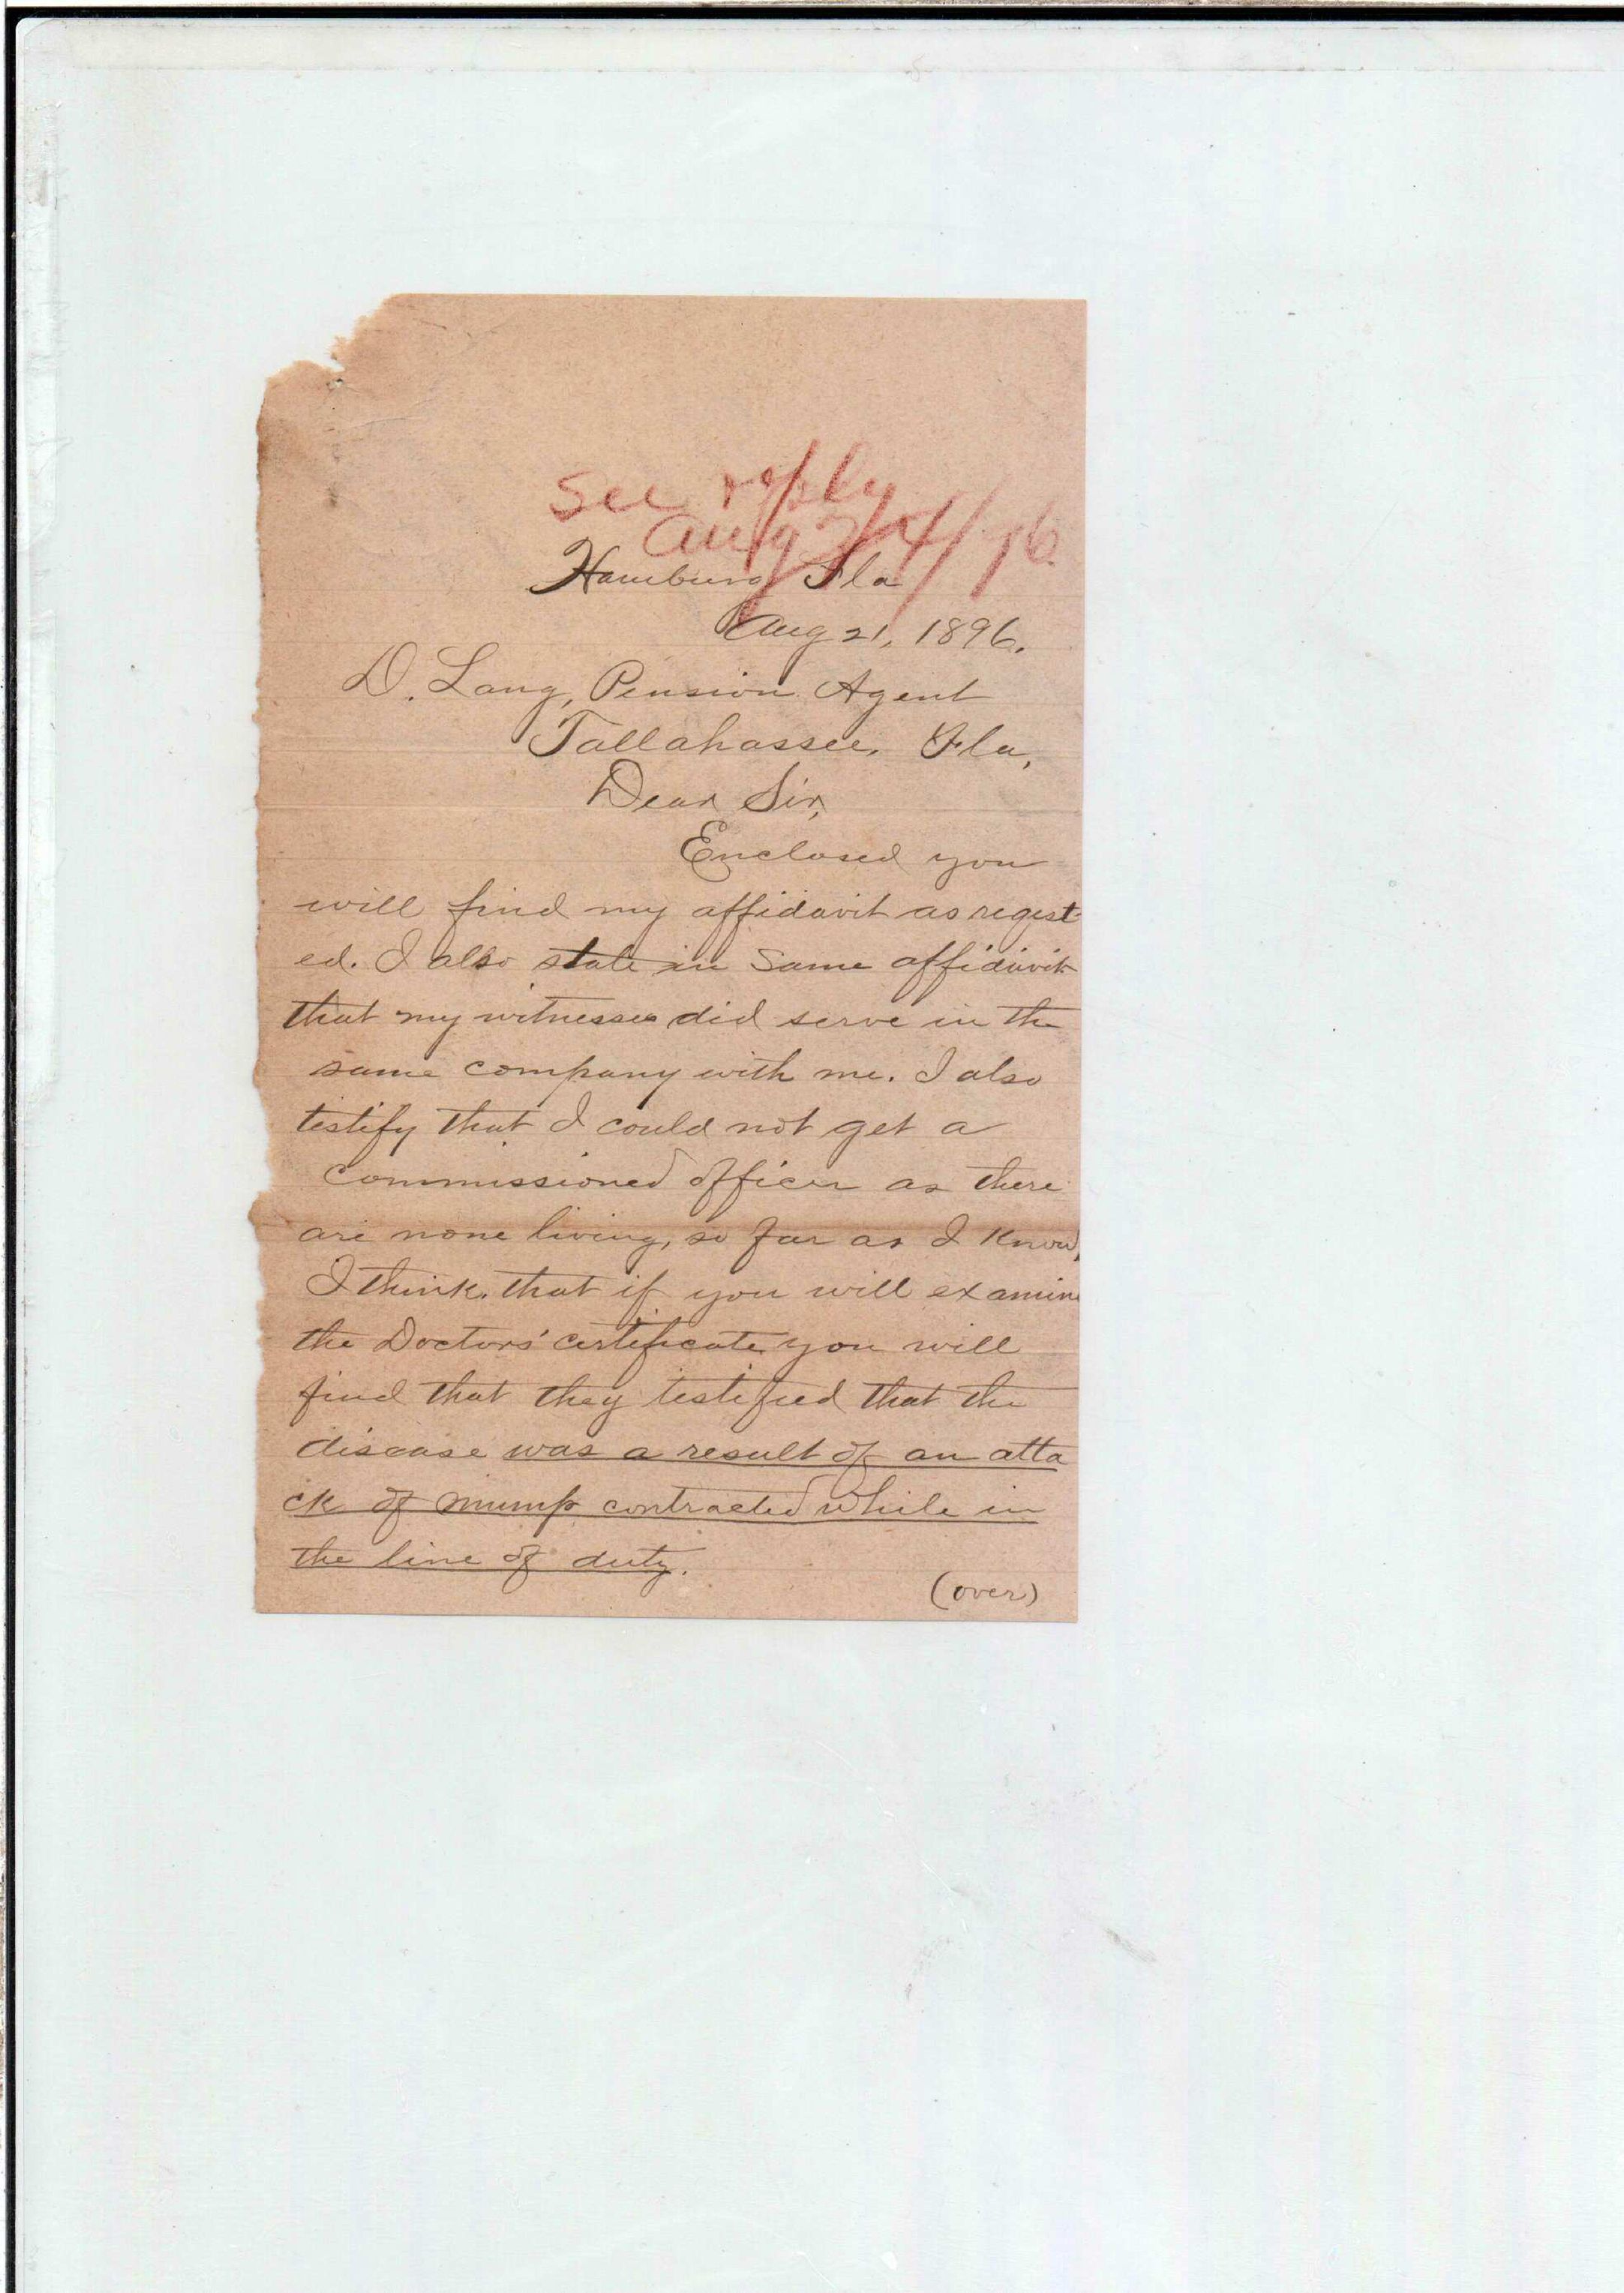 See reply
Aug 24/96
Hamburg Fla
Aug 21, 1896.
D. Lang, Pension Agent
Tallahassee, Fla,
Dear Sir,
Enclosed you
will find my affidavit as reqest-
ed. I also state in same affidavit
that my witnesses did serve in the
same company with me. I also
testify that I could not get a
commissioned officer as there
are none living, so far as I know,
I think that if you will examine
the Doctors' certificate you will
find that they testified that the
disease was a result of an atta
ck of mump contracted while in
the line of duty.
(over)